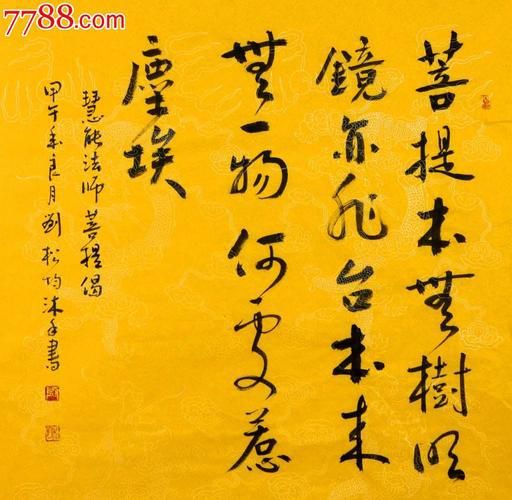 7788.com
菩提本無樹明
鏡亦非台本来
無一物何處惹
塵埃
慧能法師菩提偈
甲午年良月劉松均沐手書